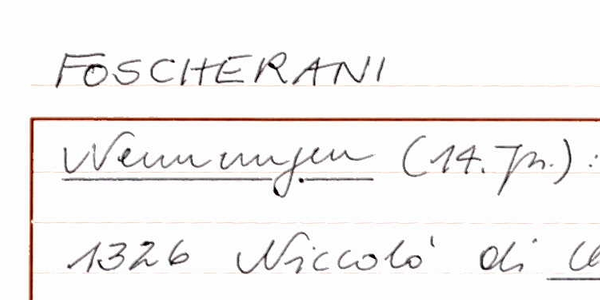 FOSCHERANI
Nennungen (14. Jh.):
1326 Niccolò di